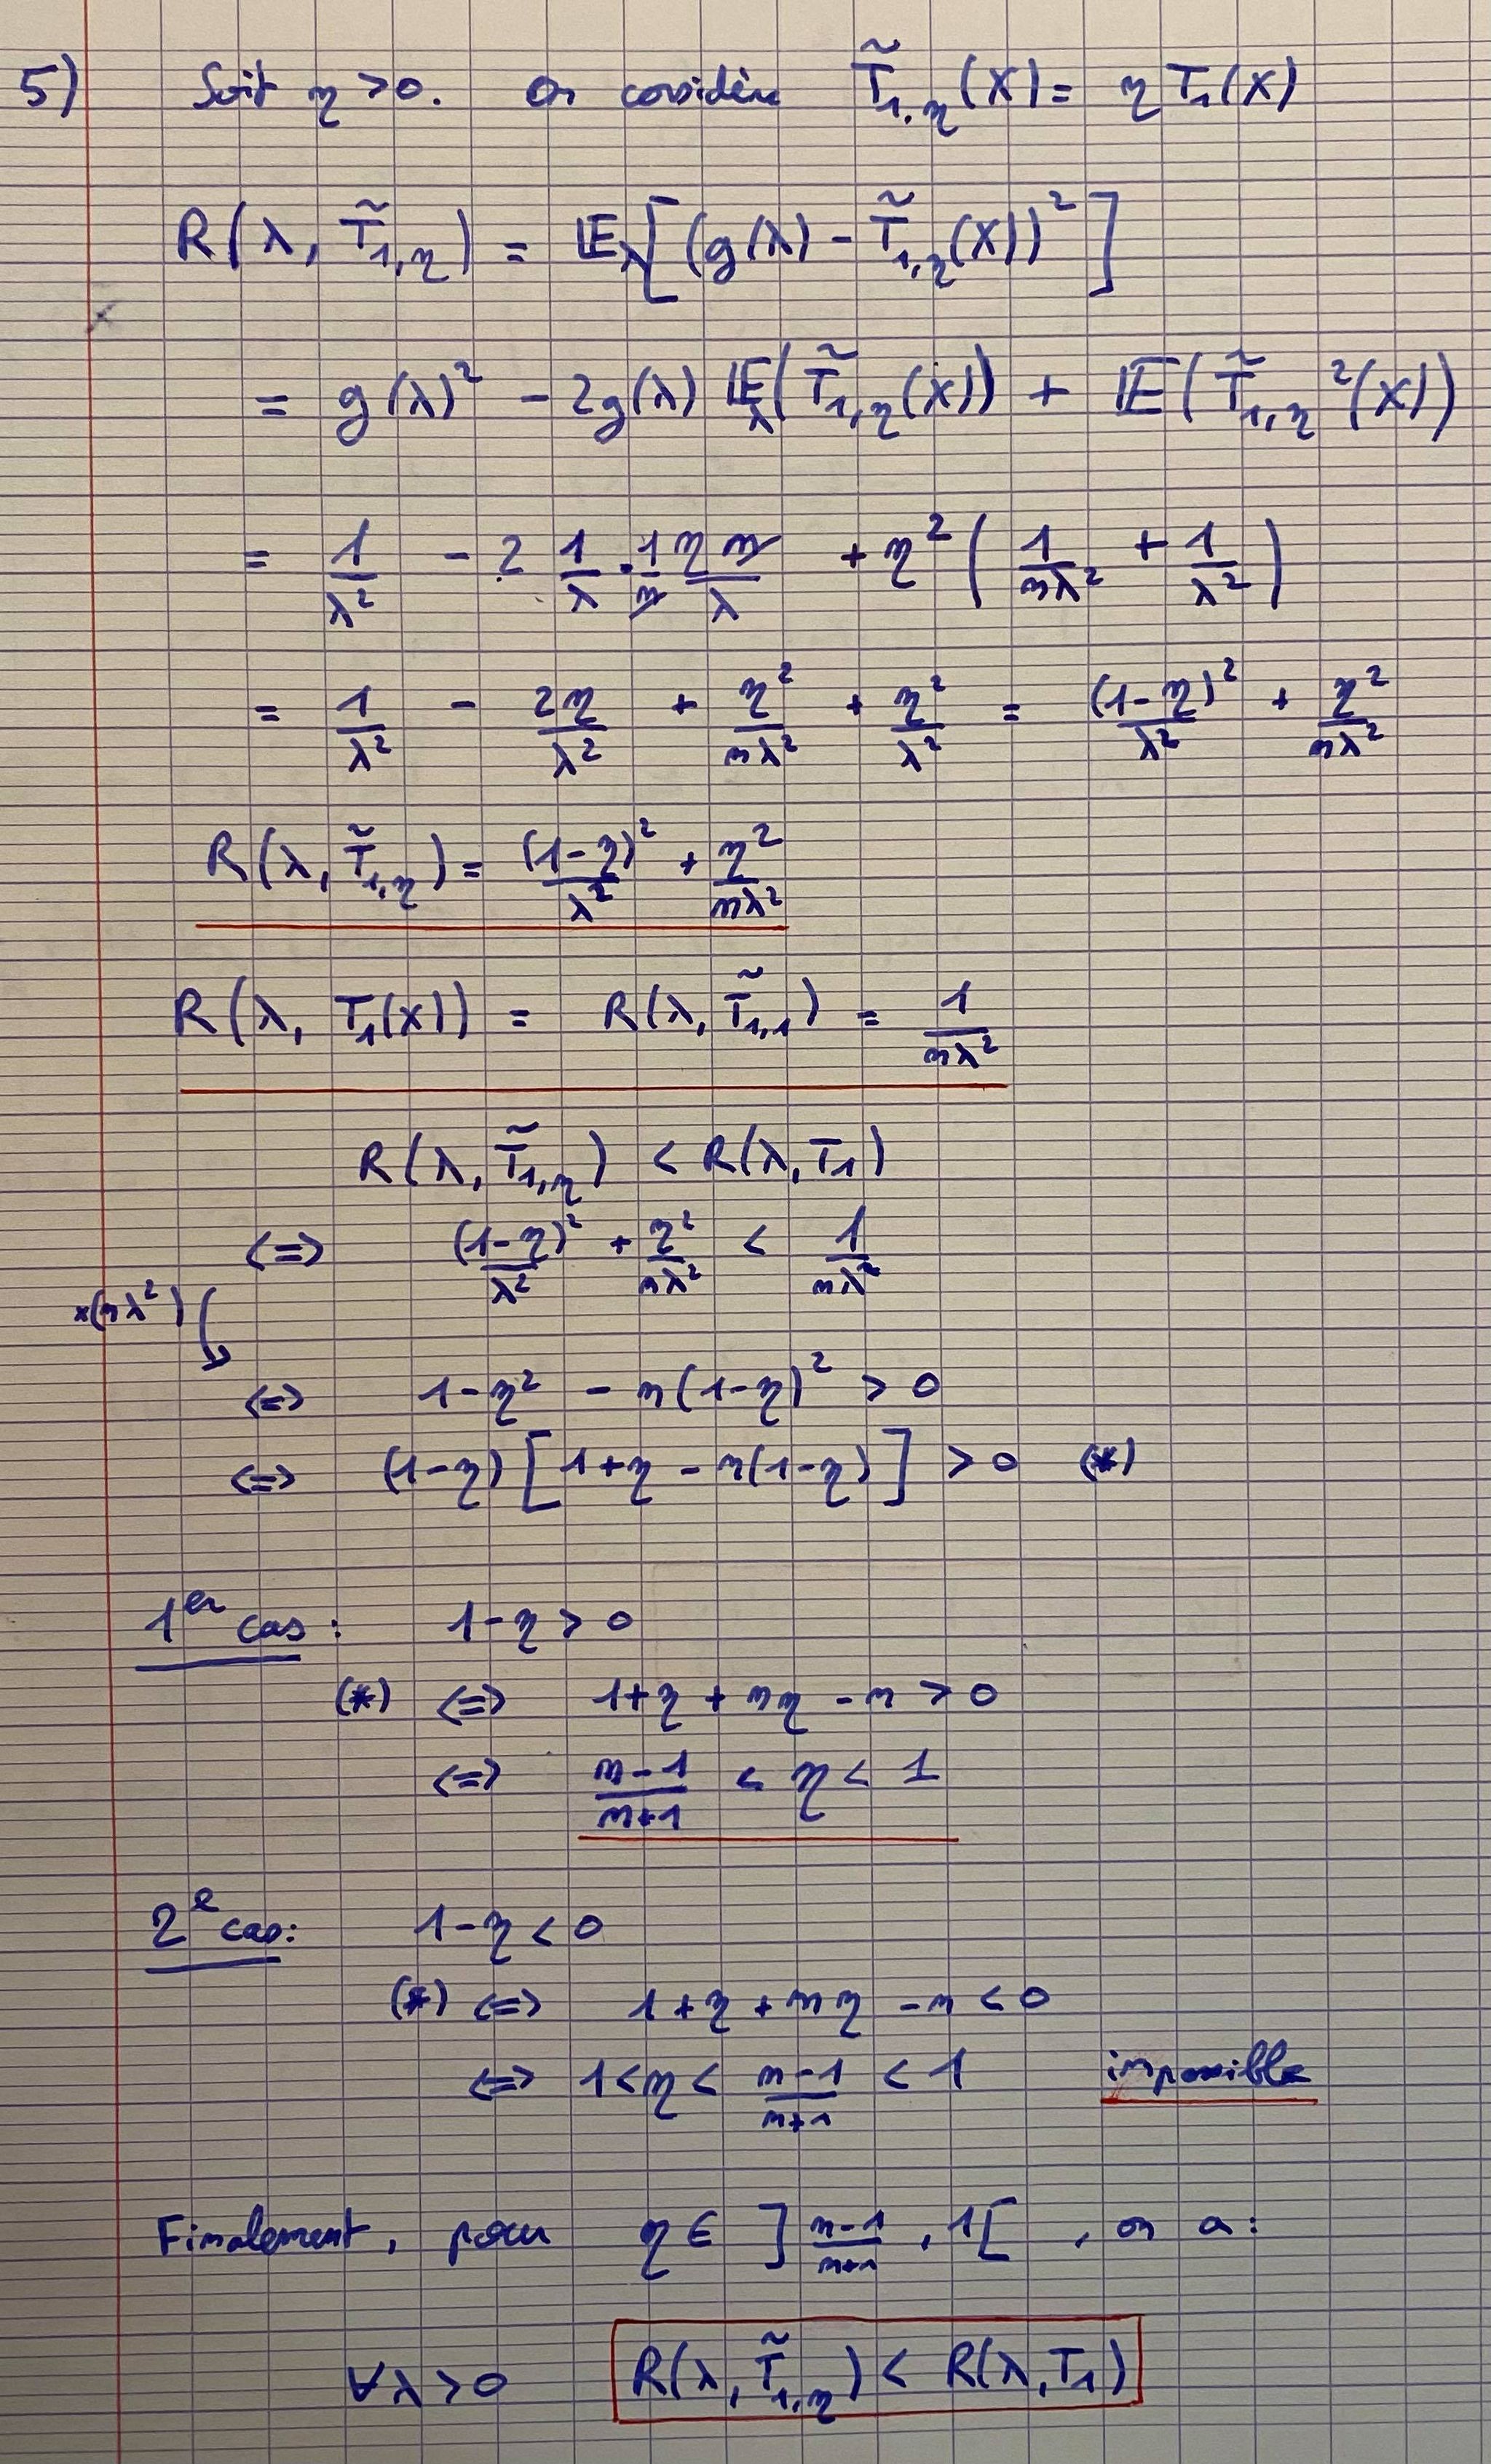 5) Soit η > 0. On considère T̃₁,η(X) = η T₁(X)
R(λ, T̃₁,η) = 𝔼λ[(g(λ) - T̃₁,η(X))²]
= g(λ)² - 2g(λ) 𝔼λ(T̃₁,η(X)) + 𝔼(T̃₁,η²(X))
= 1/λ² - 2 1/λ · 1/n η n/λ + η²(1/nλ² + 1/λ²)
= 1/λ² - 2η/λ² + η²/nλ² + η²/λ² = (1-η)²/λ² + η²/nλ²
R(λ, T̃₁,η) = (1-η)²/λ² + η²/nλ²
R(λ, T₁(X)) = R(λ, T̃₁,₁) = 1/nλ²
R(λ, T̃₁,η) < R(λ, T₁)
<=> (1-η)²/λ² + η²/nλ² < 1/nλ²
×(nλ²)
<=> 1-η² - n(1-η)² > 0
<=> (1-η)[1+η - n(1-η)] > 0 (*)
1er cas : 1-η > 0
(*) <=> 1+η + nη - n > 0
<=> n-1/n+1 < η < 1
2e cas : 1-η < 0
(*) <=> 1+η + nη - n < 0
<=> 1 < η < n-1/n+1 < 1 impossible
Finalement, pour η ∈ ]n-1/n+1, 1[ , on a :
∀λ > 0 R(λ, T̃₁,η) < R(λ, T₁)